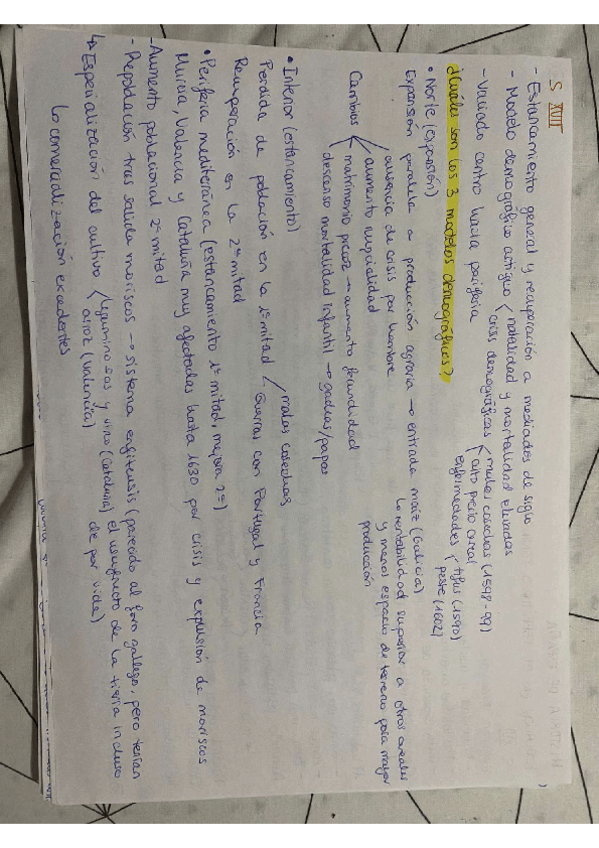 S. XVII
- Estancamiento general y recuperación a mediados de siglo
- Modelo demográfico antiguo < natalidad y mortalidad elevadas
crisis demográficas < malas cosechas (1598-99)
alto precio cereal
enfermedades < tifus (1590)
peste (1602)
- Vaciado centro hacia periferia
¿Cuáles son los 3 modelos demográficos?
• Norte (expansión)
Expansión paralela a producción agraria → entrada maíz (Galicia)
↳ rentabilidad superior a otros cereales
y menos espacio de terreno para mayor
producción
Cambios < ausencia de crisis por hambre
aumento nupcialidad
matrimonio precoz → aumento fecundidad
descenso mortalidad infantil → gachas/papas
• Interior (estancamiento)
Perdida de población en la 1ª mitad < malas cosechas
Guerras con Portugal y Francia
Recuperación en la 2ª mitad
• Periferia mediterránea (estancamiento 1ª mitad, mejora 2ª)
Murcia, Valencia y Cataluña muy afectadas hasta 1630 por crisis y expulsión de moriscos
- Aumento poblacional 2ª mitad
- Repoblación tras salida moriscos → sistema enfiteusis (parecido al foro gallego, pero tenían
el usufructo de la tierra incluso
de por vida)
↳ Especialización del cultivo < leguminosas y vino (Cataluña)
arroz (Valencia)
↳ comercialización excedentes